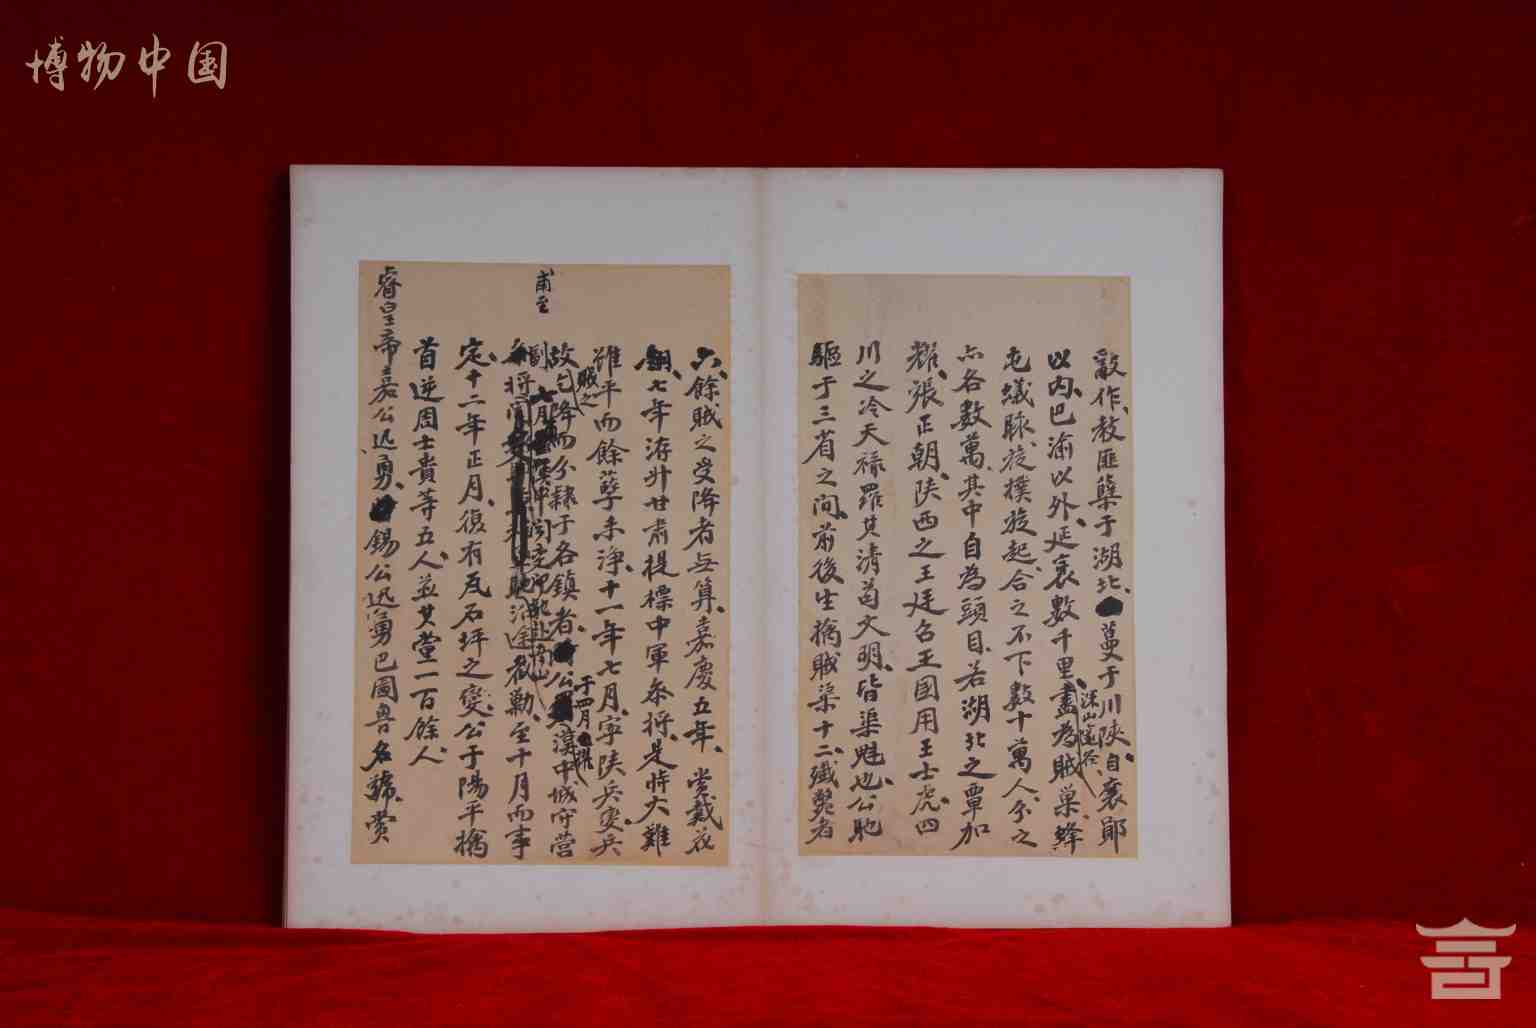 博物中国
敿作教匪蘖于湖北蔓于川陝自襄鄖
以內巴渝以外延袤數千里盡為賊巢蜂
深山窮谷
屯蟻聚旋撲旋起合之不下數十萬人分之
亦各數萬其中自為頭目若湖北之覃加
耀張正朝陝西之王廷詔王国用王士虎四
川之冷天祿羅其清苟文明皆渠魁也公馳
驅于三省之间前後生擒賊渠十二殲斃者
六餘賊之受降者無算嘉慶五年賞戴花
翎七年洊升甘肅提標中軍叅將是時大難
雖平而餘孽未淨十一年七月寧陝兵變兵
賊之
故乞降而分隸于各鎮者公漢中城守營
于四月擢
副將馳沿途截勦至十月而事
甫至
定十二年正月復有瓦石坪之變公于陽平擒
首逆周士貴等五人並其黨一百餘人
睿皇帝嘉公迅勇錫公迅勇巴圖魯名號賞